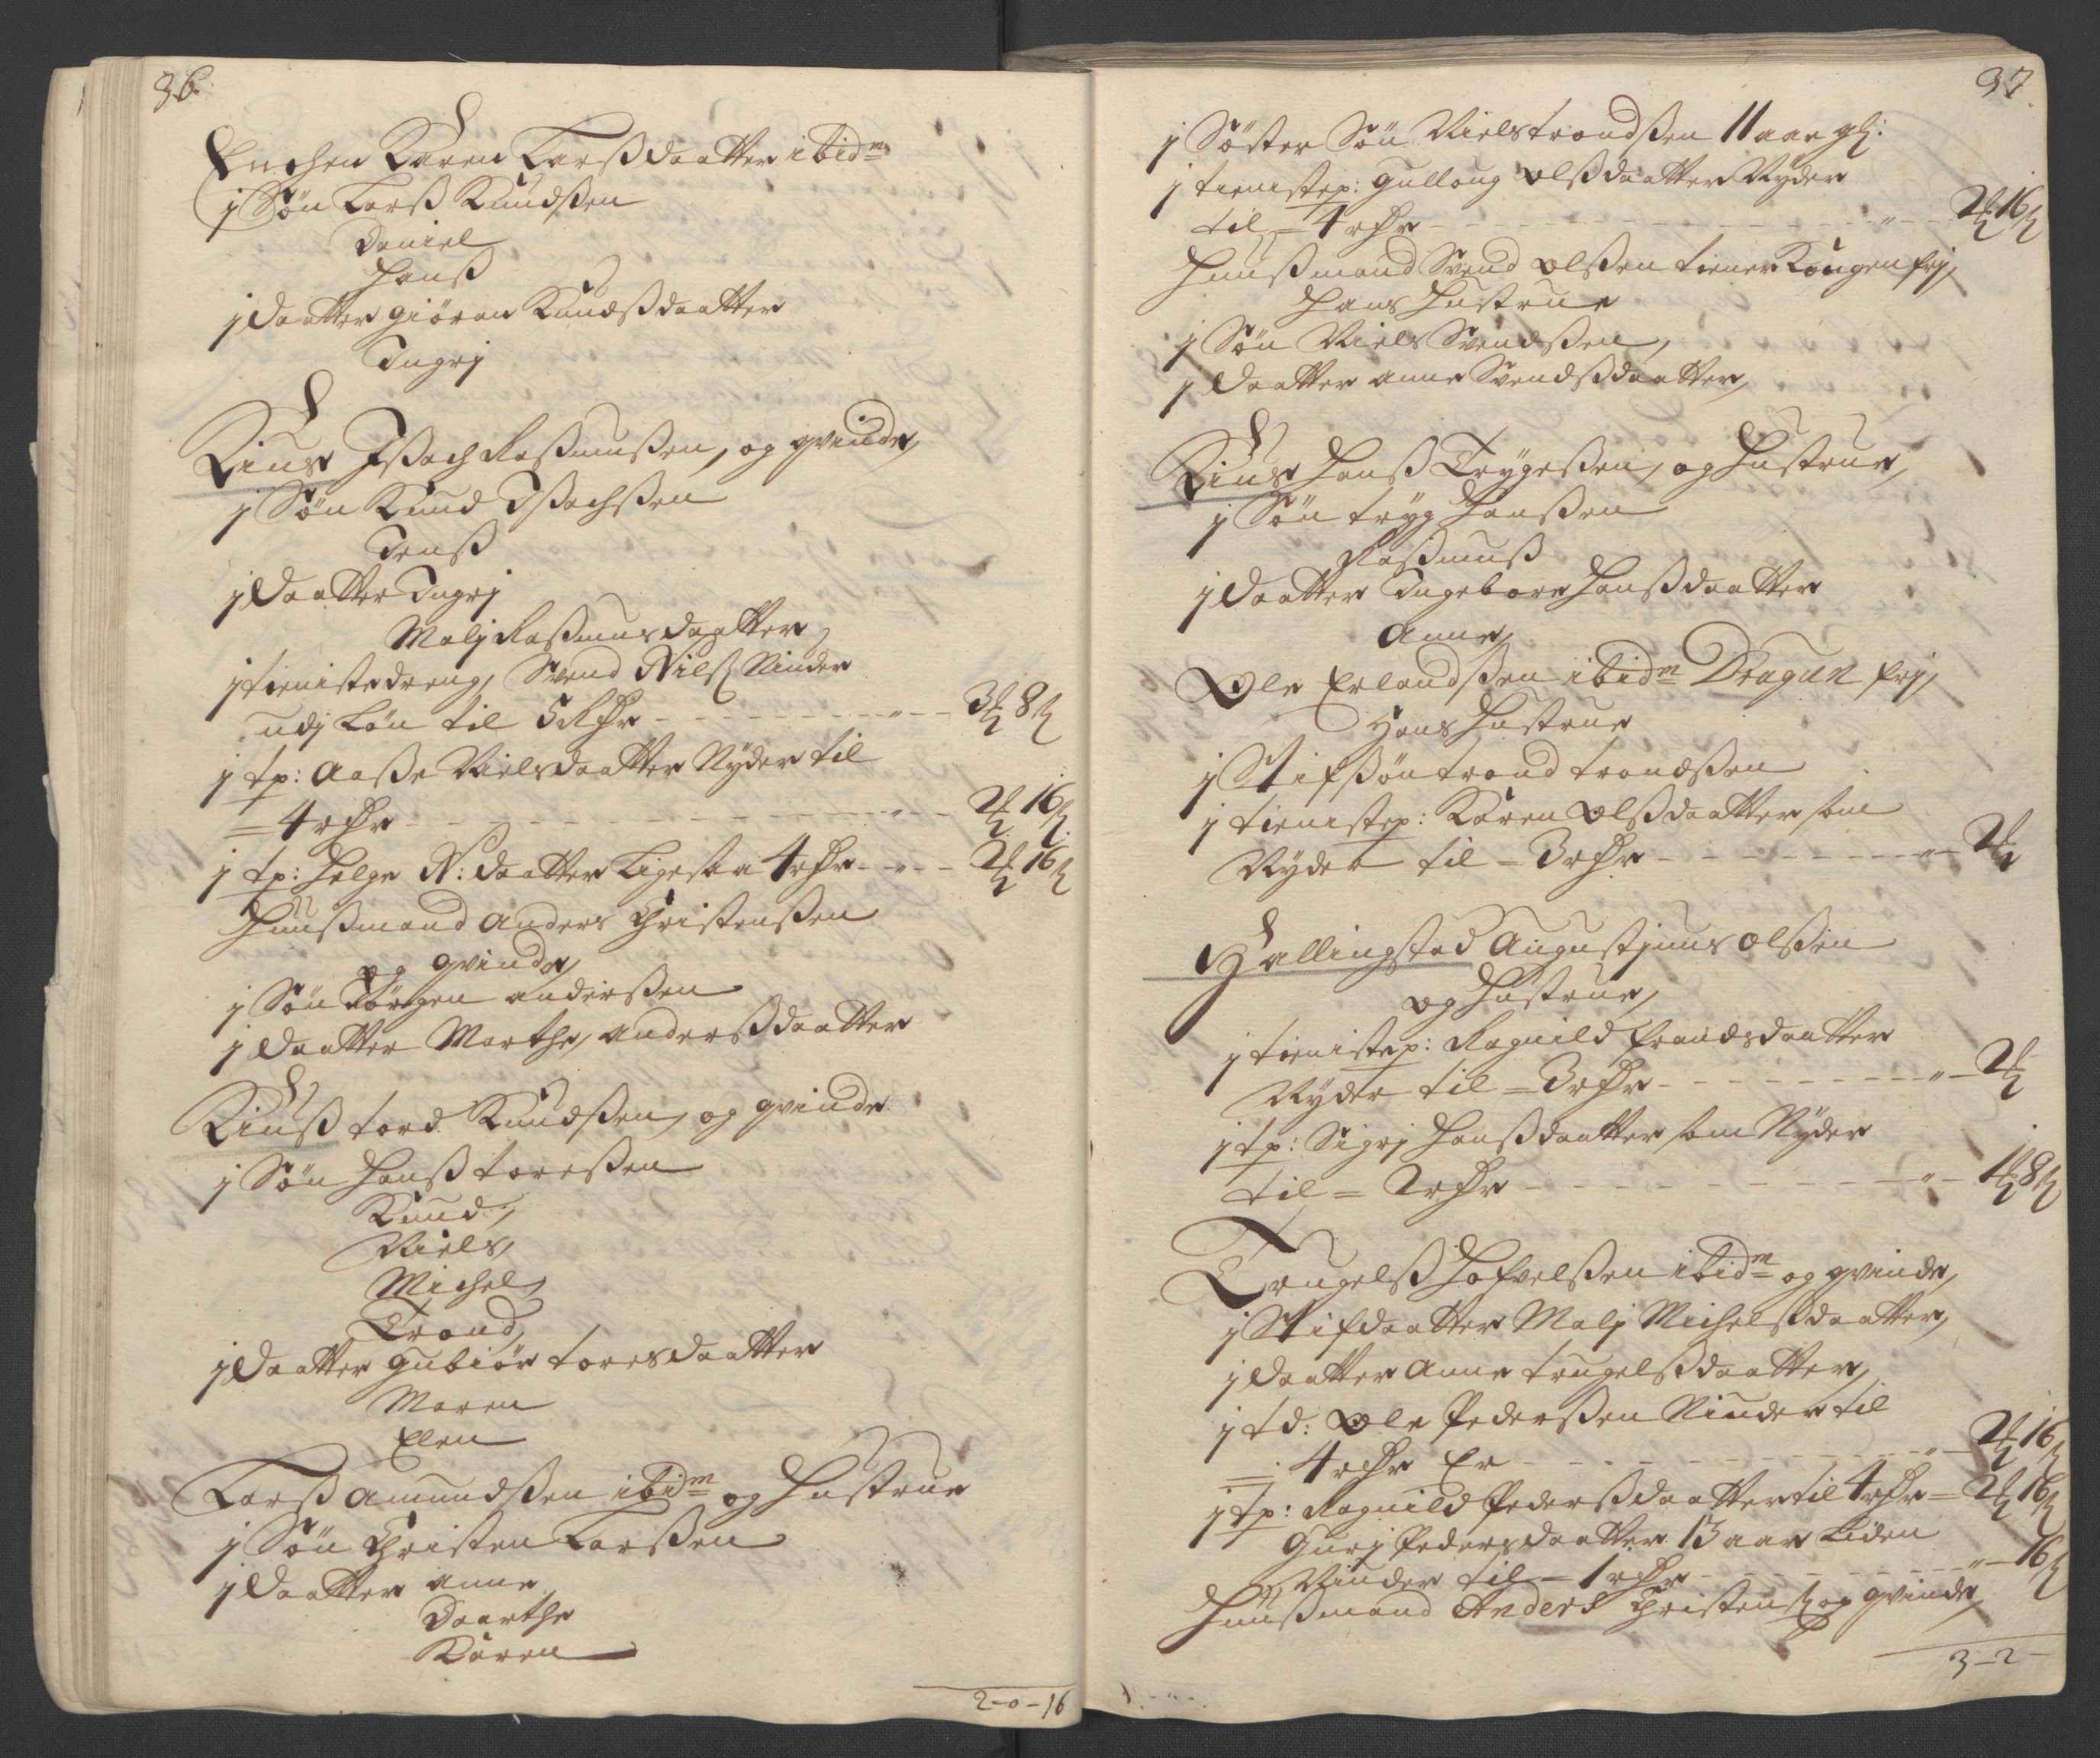 36.
Enchen Karen Larsdaatter ibidm
j Søn Lars Knudsen
Daniel
Hans
j Daatter giøran Knudsdaatter
Ingrj
Riuse Isach Rasmusen, og qvinde,
j Søn Knud Isachsen
Jens
j Daatter Ingrj
Malj Rasmusdaatter
j tienistedreng, Svend Nils Niuder
udj Løn til 5 Rdr - - - 3 ₰ 8 ß
j tp: Aase Nielsdaatter Nyder til
= 4 rdr - - - 2 ₰ 16 ß
j tp: Helge N: daatter Ligesaa 4 rdr - - 2 ₰ 16 ß
Huusmand Anders Christensen
og qvinde,
j Søn Jörgen andersen
j Daatter Marthe, andersdaatter
Riuse tord Knudsen, og qvinde
j Søn Hans toresen
Knud,
Niels,
Michel,
Trond,
j Daatter gubiör toresdaatter
Maren
Elen
Lars Amundsen ibidm og Hustrue
j Søn Christen Larsen
j Daatter anne
Daarthe
Karen
2-0-16
37.
j Söster Søn Niels trondsen 11 aar gl:
j tienistep: gulloug olsdaatter Nyder
til = 4 rdr - - - 2 ₰ 16 ß
Huusmand Svend olsen tiener Kongen frj,
Hans Hustrue
j Søn Niels Svendsen,
j Daatter anne Svendsdaatter,
Riuse Hans Trygesen, og Hustrue,
j Søn tryg Hansen
Rasmus
j Daatter Ingebore Hansdaatter
Anne,
Ole Erlandsen ibidm Dragun frj,
Hans Hustrue
j Stifsøn trond trondsen
j tienistep: Karen olsdaatter som
Nyder til = 3 rdr - - - 2 ₰
Hallingstad Augustjnus olsen
og Hustrue,
j tienistep: Ragnild frandsdaatter
Nyder til = 3 rdr - - - 2 ₰
j tp: Sigrj Hansdaatter som Nyder
til = 2 rdr - - - 1 ₰ 8 ß
Trugels Hofvelsen ibidm og qvinde,
j Stifdaatter Malj Michelsdaatter,
j Daatter Anne trugelsdaatter,
j td: Ole Pedersen Niuder til
= 4 rdr Er - - - 2 ₰ 16 ß
j tp: Ragnild Pedersdaatter til 4 rdr = 2 ₰ 16 ß
Gurj Pedersdaatter 13 aar Liden
Niuder til = 1 rdr - - - 16 ß
Huusmand Anders Christens og qvinde,
3-2-